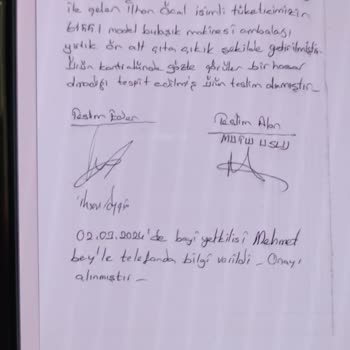 ile gelen İlhan Öcal isimli tüketicimizin
model bulaşık makinesi ambalajı
yırtık ön alt çıta çıkık şekilde getirilmiştir.
Ürün kontrolünde gözle görülür bir hasar
olmadığı tespit edilmiş ürün teslim alınmıştır.
Teslim Eden
Teslim Alan
USLU
02.09.2024'de bayi yetkilisi Mehmet
bey'le telefonda bilgi verildi - Onayı
alınmıştır -